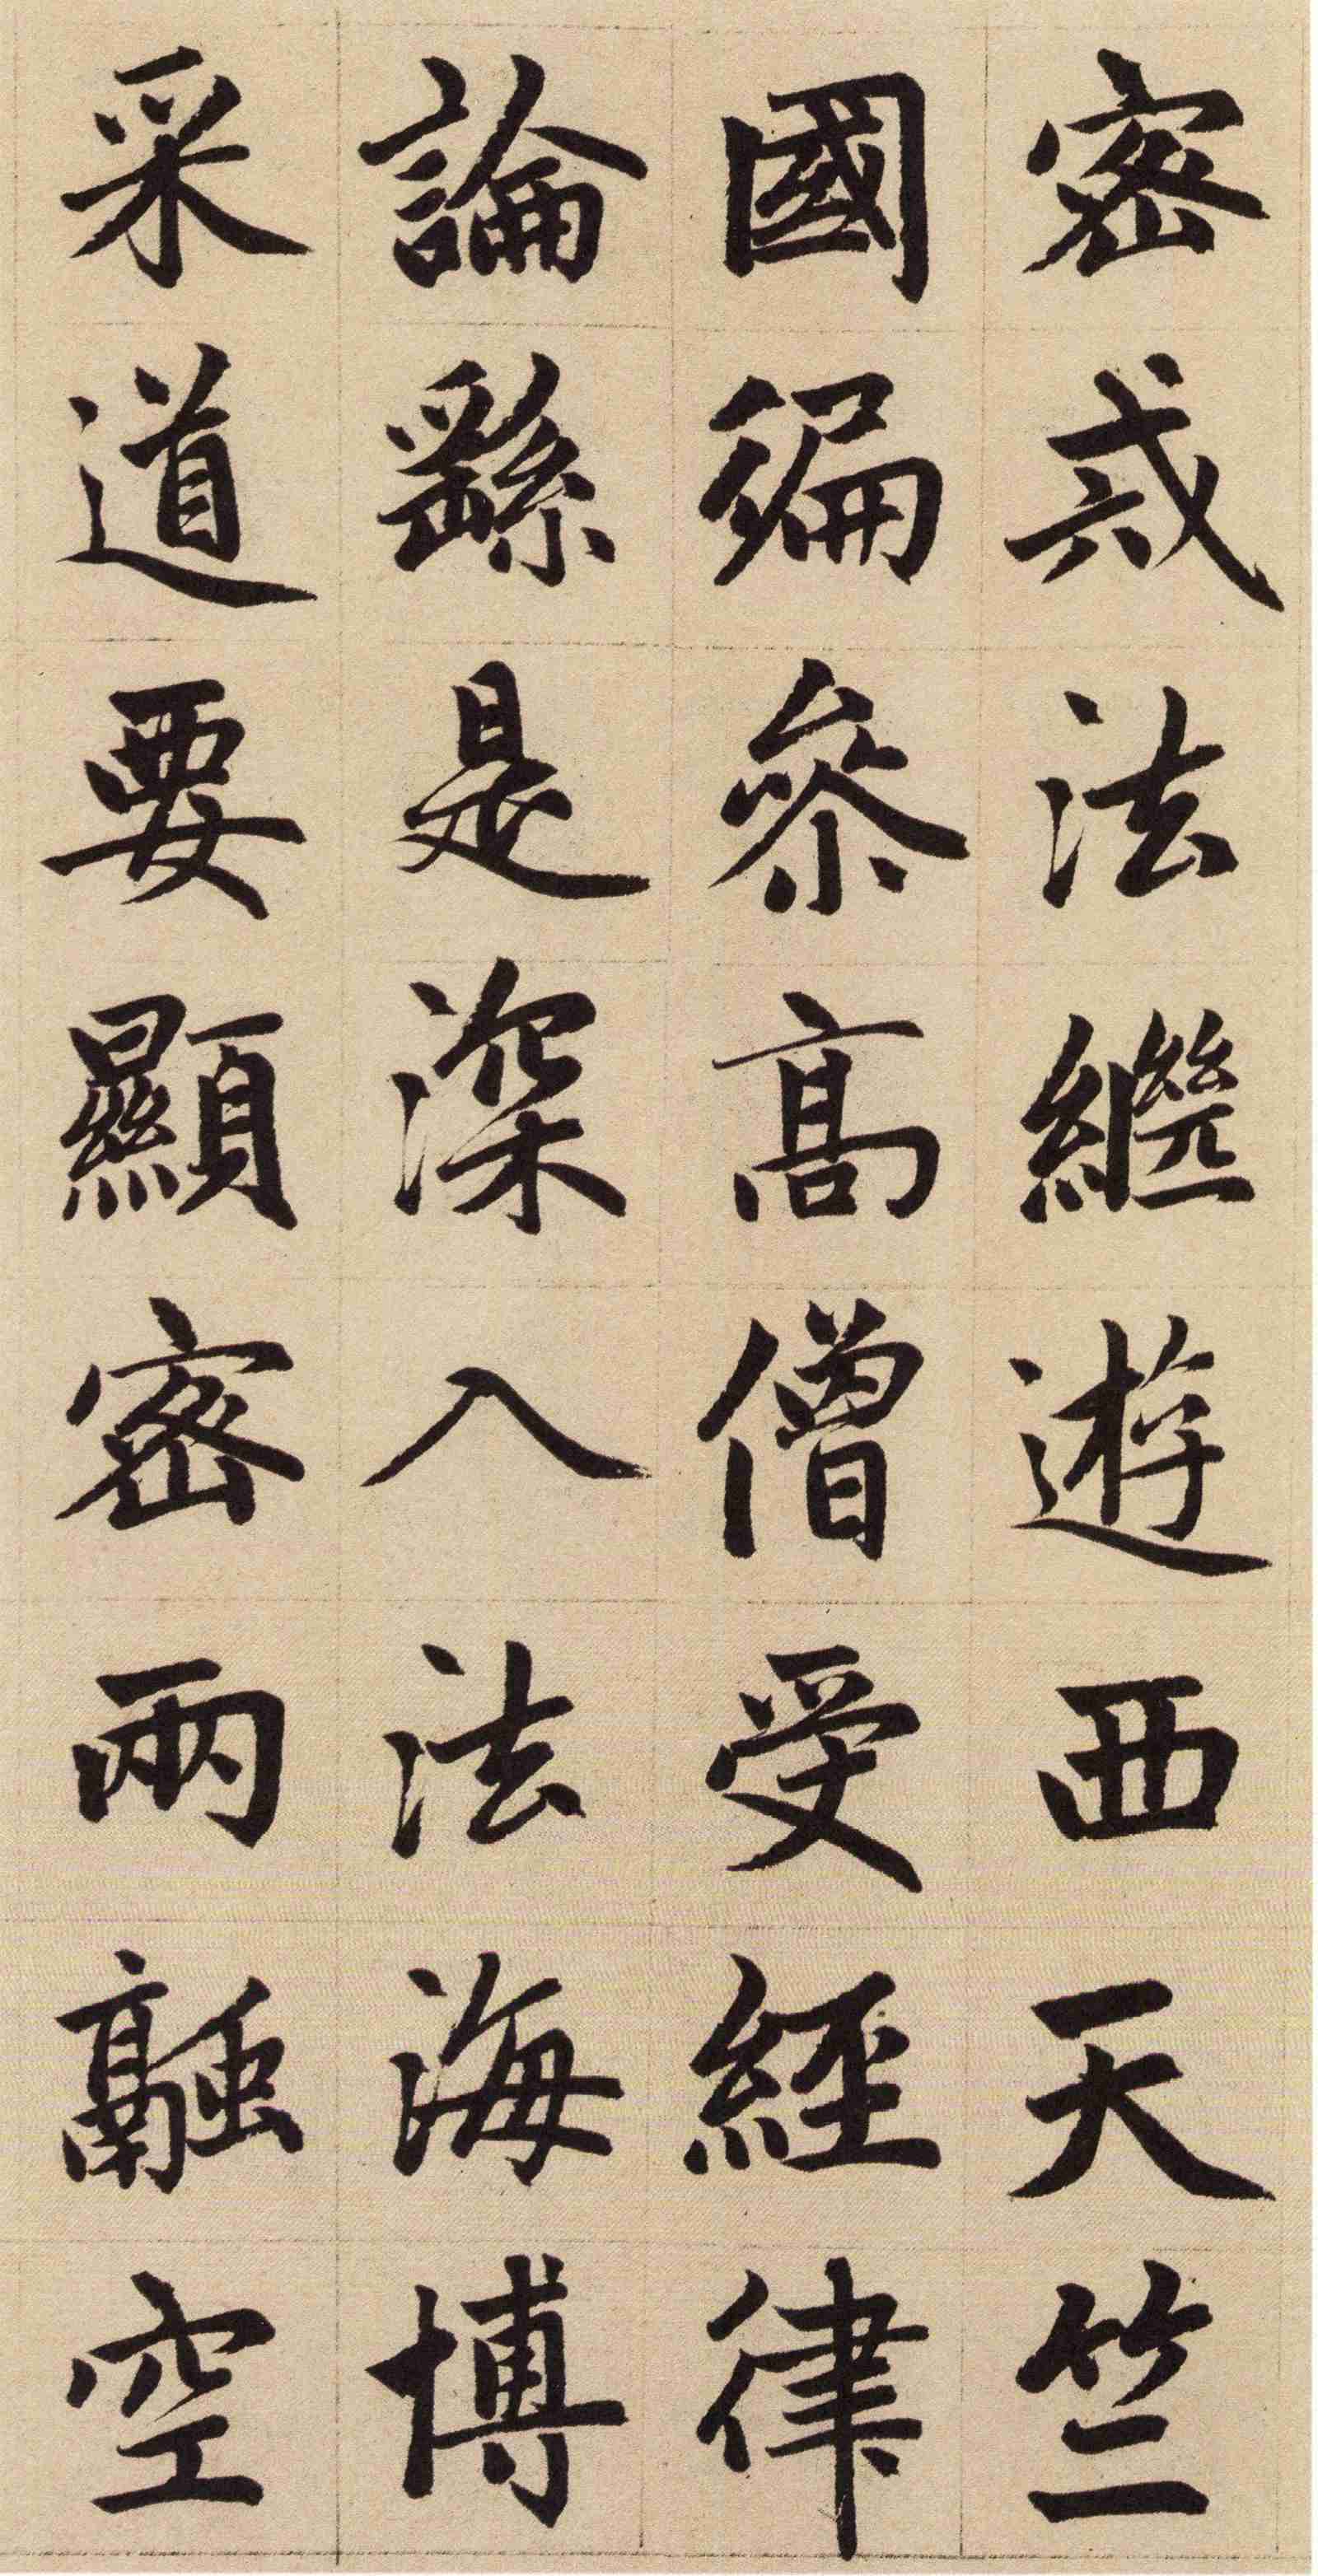 密戒法繼遊西天竺
國徧參高僧受經律
論繇是深入法海博
采道要顯密兩融空